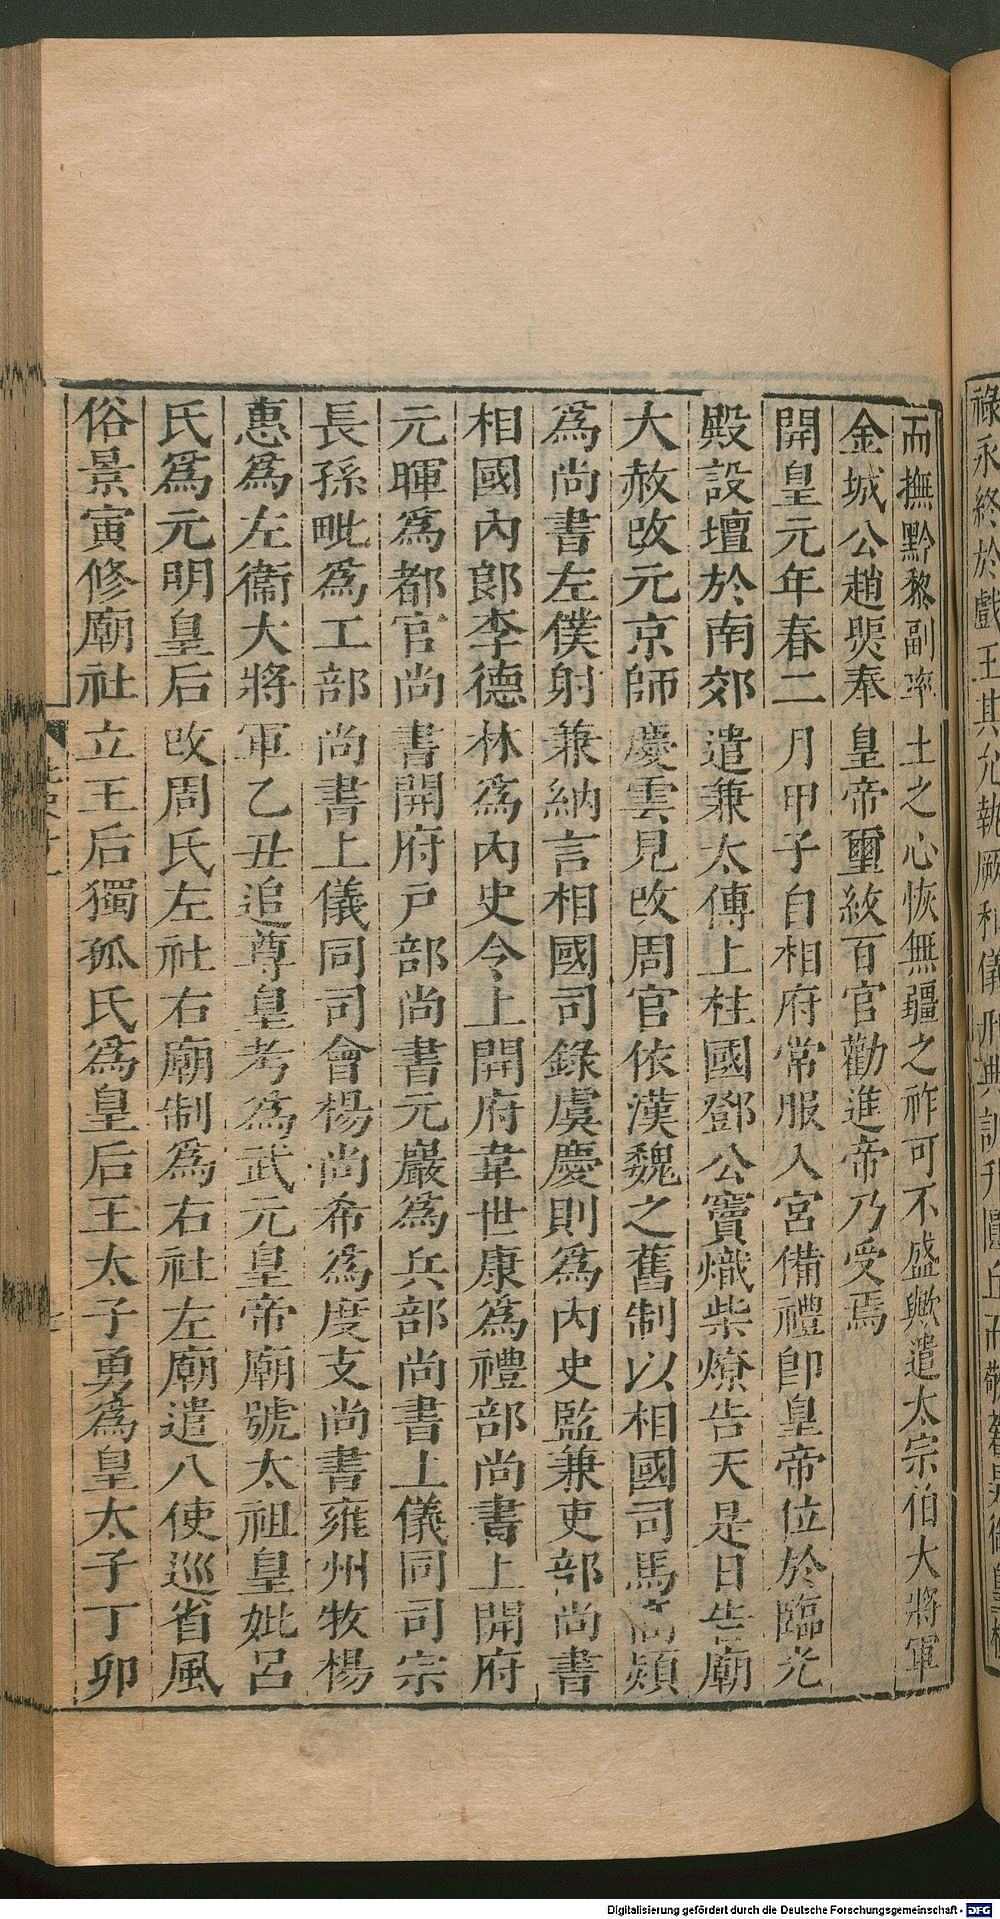 祿永終於戲王其允執厥和儀刑典訓升圜丘而敬蒼昊御皇極
而撫黔黎副率土之心恢無疆之祚可不盛歟遣太宗伯大將軍
金城公趙煚奉皇帝璽紱百官勸進帝乃受焉
開皇元年春二月甲子自相府常服入宮備禮卽皇帝位於臨光
殿設壇於南郊遣兼太傅上柱國鄧公竇熾柴燎告天是日告廟
大赦改元京師慶雲見改周官依漢魏之舊制以相國司馬高熲
為尚書左僕射兼納言相國司錄虞慶則為內史監兼吏部尚書
相國內郎李德林為內史令上開府韋世康為禮部尚書上開府
元暉為都官尚書開府戶部尚書元巖為兵部尚書上儀同司宗
長孫毗為工部尚書上儀同司會楊尚希為度支尚書雍州牧楊
惠為左衞大將軍乙丑追尊皇考為武元皇帝廟號太祖皇妣呂
氏為元明皇后改周氏左社右廟制為右社左廟遣八使巡省風
俗景寅修廟社立王后獨孤氏為皇后王太子勇為皇太子丁卯
Digitalisierung gefördert durch die Deutsche Forschungsgemeinschaft - DFG